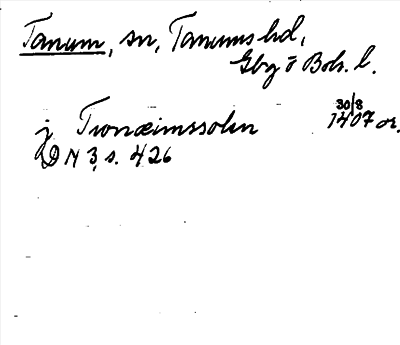 Tanum, sn, Tanums hd,
Gbg o Boh. l.
j Tronæimssolen 30/8 1407 or.
DN 3, s. 426